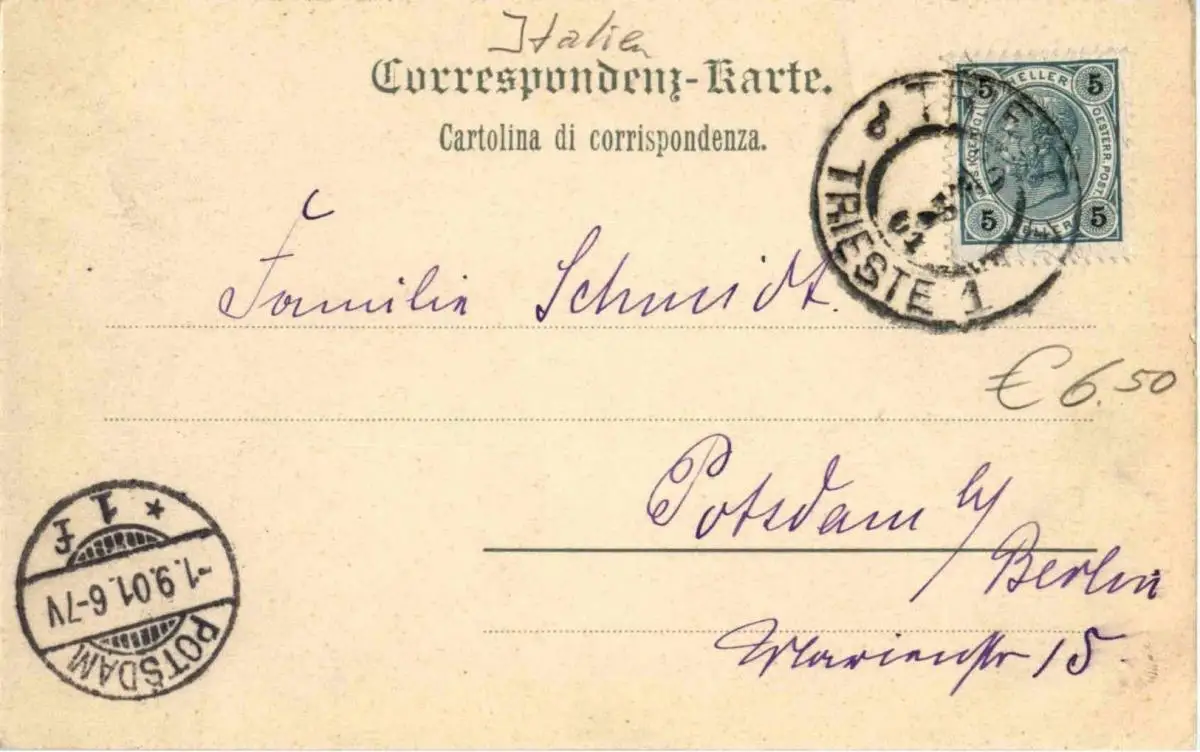 Italien
Correspondenz-Karte.
Cartolina di corrispondenza.
5 HELLER 5
OESTERR. POST.
5 5
TRIEST
TRIESTE 1
01
Familie Schmidt.
€ 6.50
Potsdam b/
Berlin
Marienstr 15
* 1 f
-1.9.01. 6-7V
POTSDAM